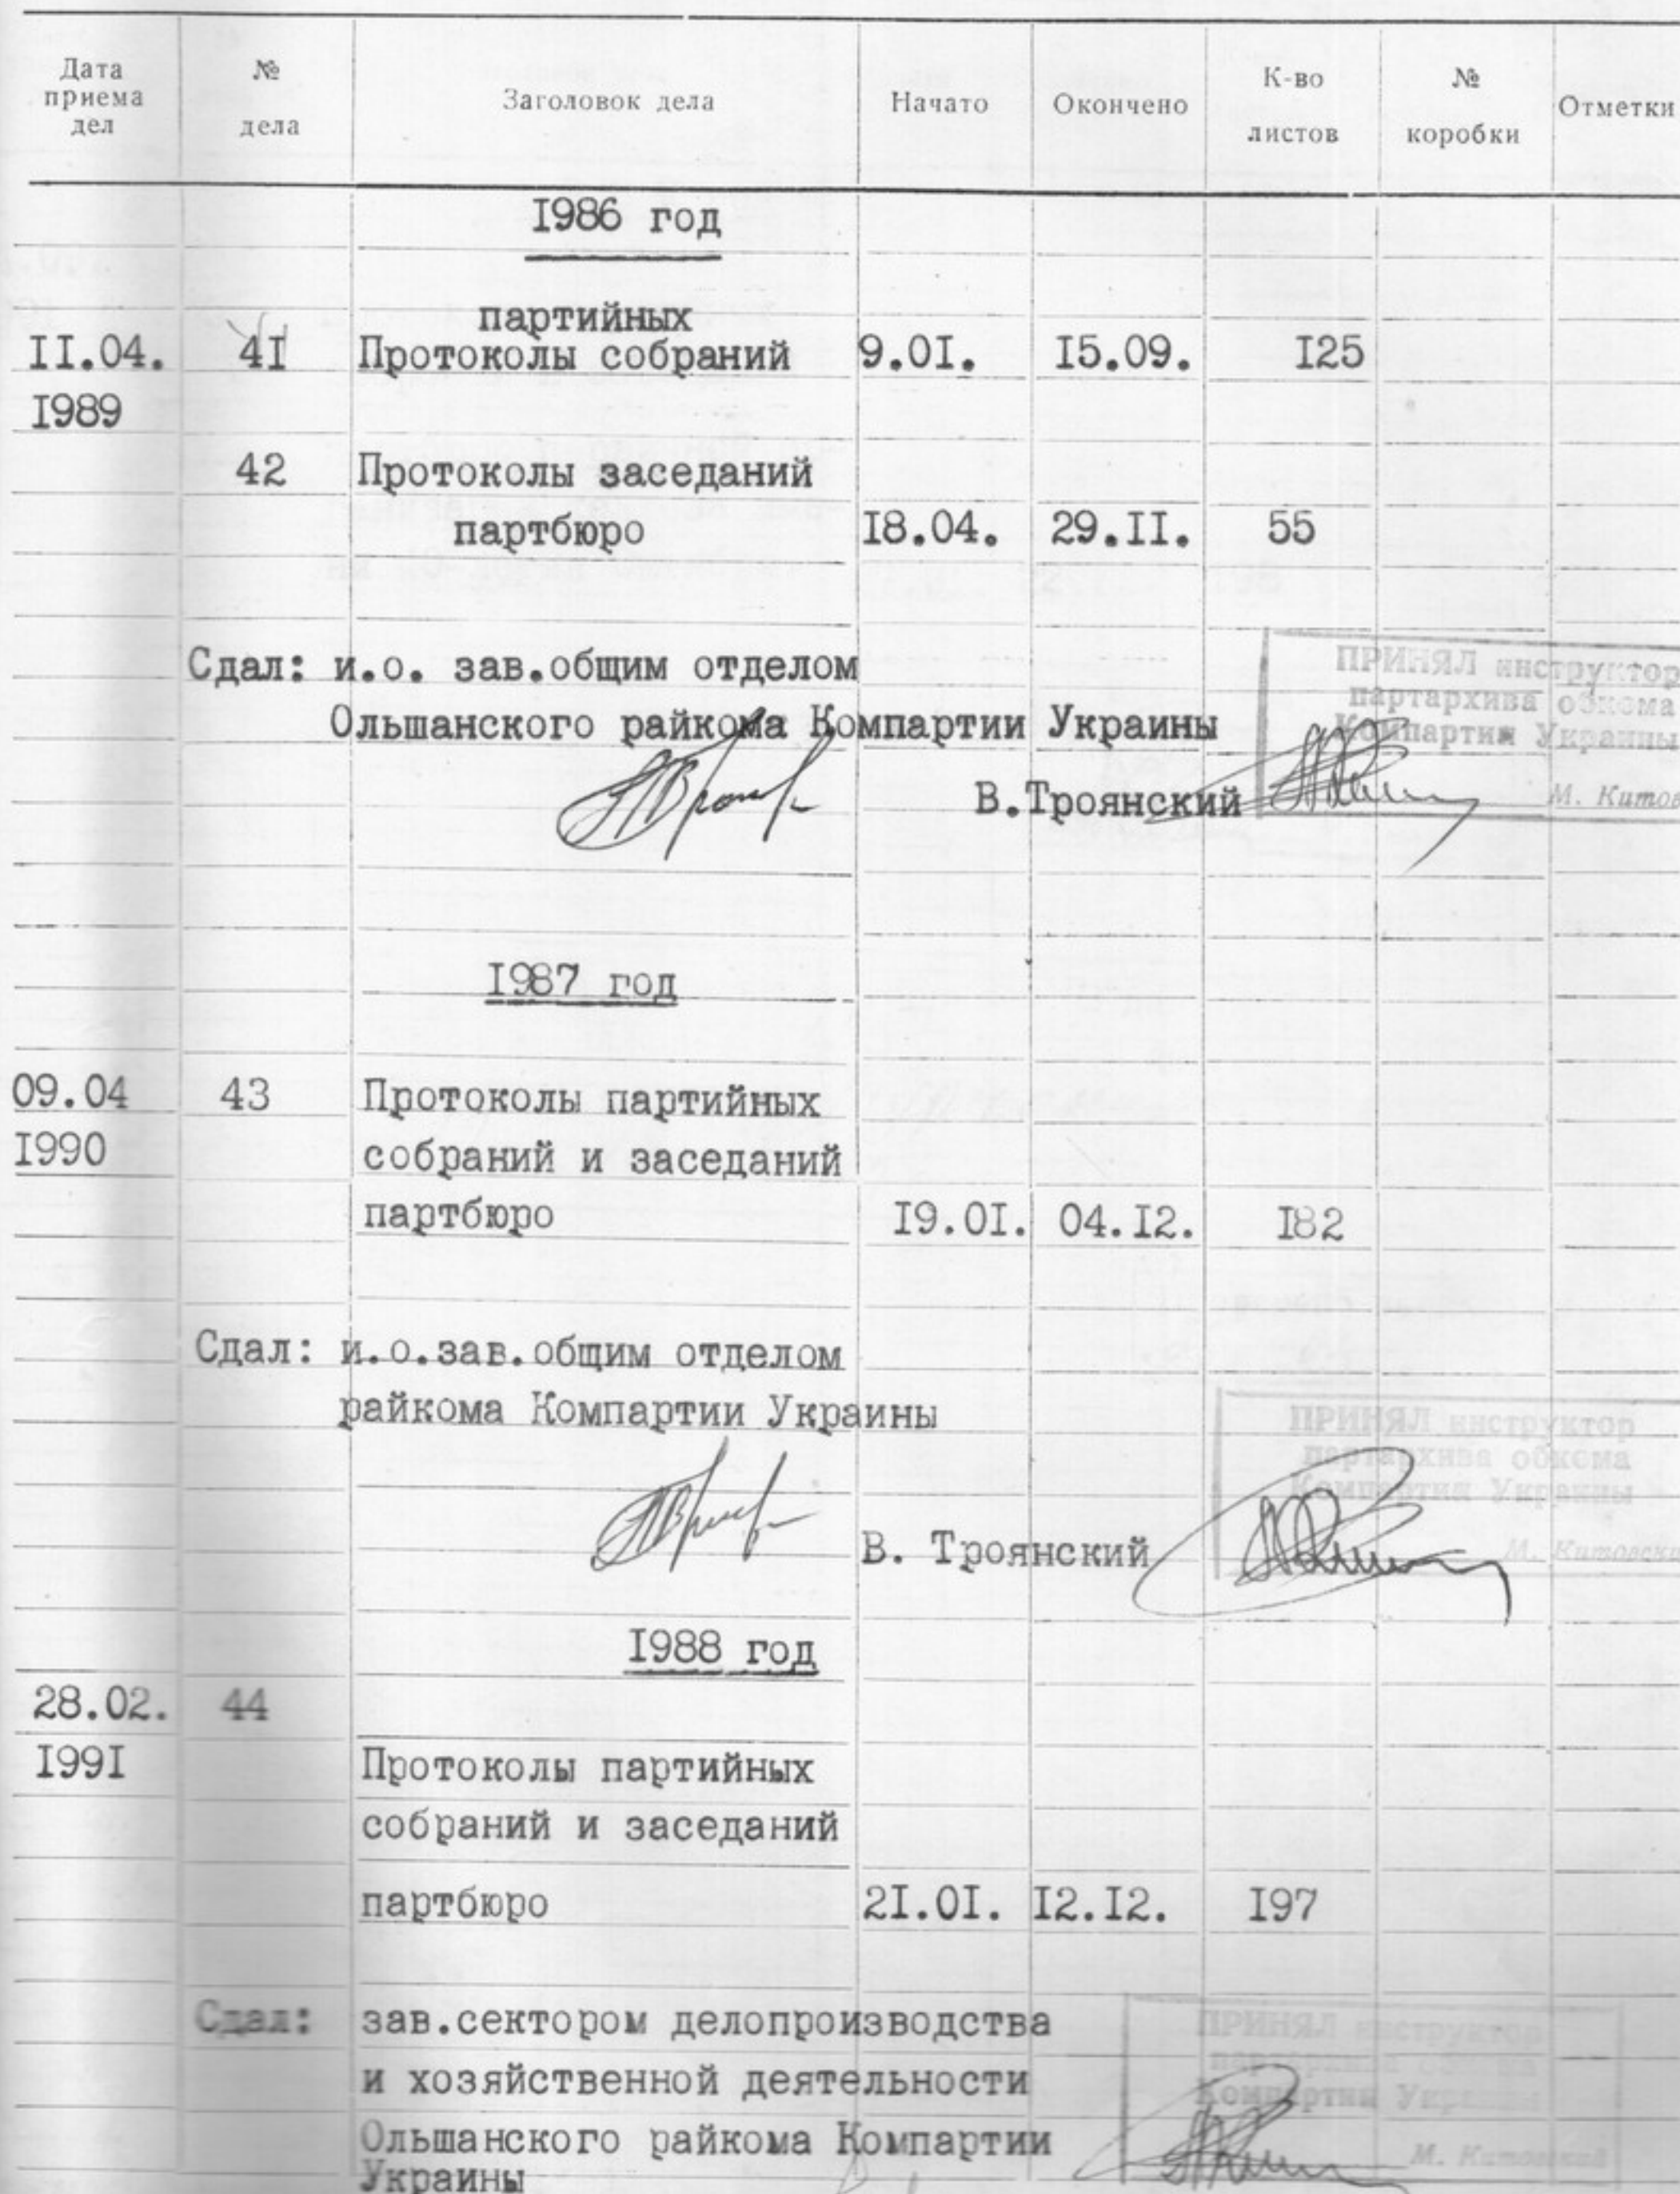 Дата приема дел	№ дела	Заголовок дела	Начато	Окончено	К-во листов	№ коробки	Отметки
I986 год
партийных
II.04.	4I	Протоколы собраний	9.0I.	I5.09.	I25
I989
42	Протоколы заседаний
партбюро	I8.04.	29.II.	55
Сдал: и.о. зав.общим отделом
Ольшанского райкома Компартии Украины
ПРИНЯЛ инструктор
партархива обкома
Компартии Украины
В.Троянский
М. Китов
I987 год
09.04	43	Протоколы партийных
I990	собраний и заседаний
партбюро	I9.0I.	04.I2.	I82
Сдал: и.о.зав.общим отделом
райкома Компартии Украины
ПРИНЯЛ инструктор
партархива обкома
Компартии Украины
В. Троянский
М. Китовски
I988 год
28.02.	44
I99I	Протоколы партийных
собраний и заседаний
партбюро	2I.0I.	I2.I2.	I97
Сдал: зав.сектором делопроизводства
и хозяйственной деятельности
Ольшанского райкома Компартии
Украины
ПРИНЯЛ инструктор
партархива обкома
Компартии Украины
М. Китовский